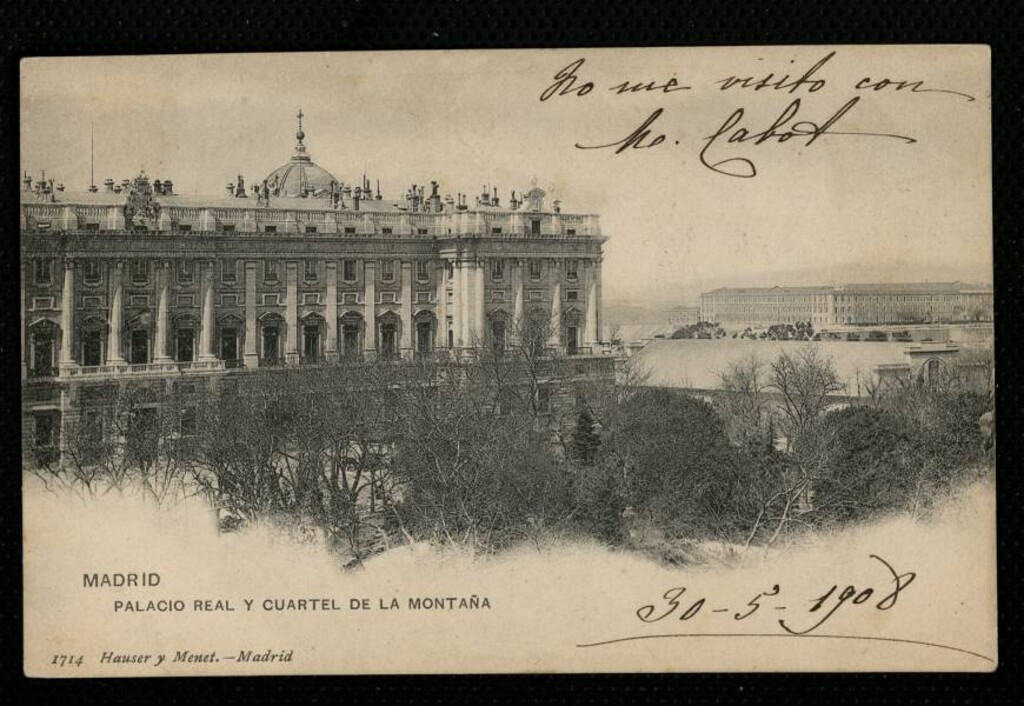 No me visito con
Mo. Cabot
MADRID
PALACIO REAL Y CUARTEL DE LA MONTAÑA
30-5-1908
1714 Hauser y Menet.—Madrid